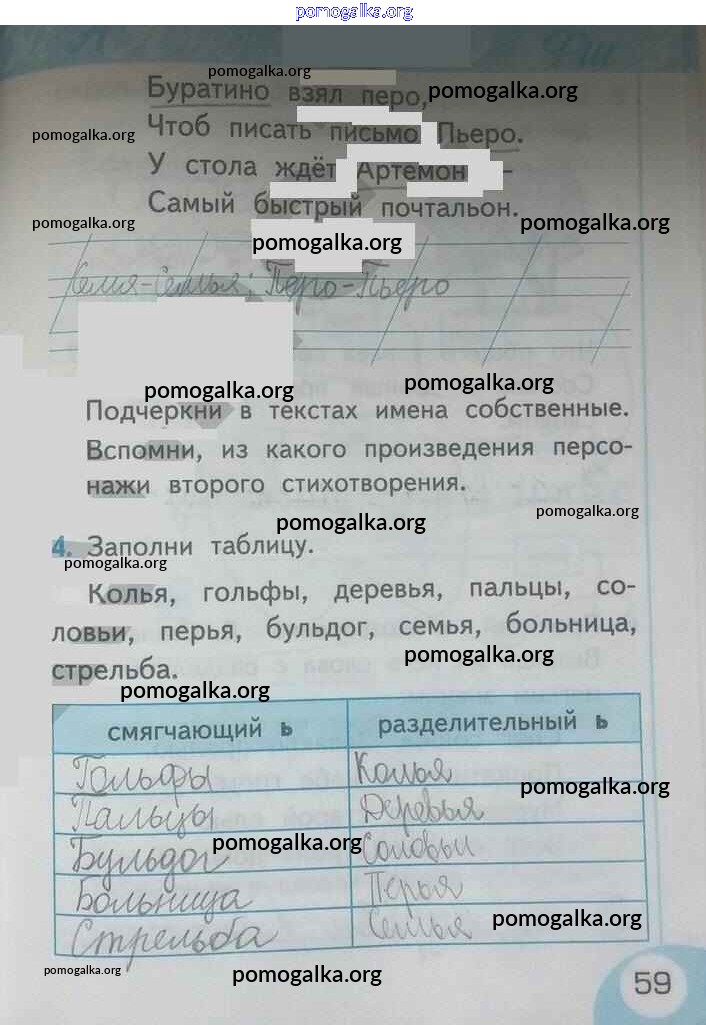 pomogalka.org
pomogalka.org
Буратино взял перо, pomogalka.org
pomogalka.org Чтоб писать письмо Пьеро.
У стола ждёт Артемон -
Самый быстрый почтальон.
pomogalka.org pomogalka.org
pomogalka.org
Семя-Семья; Перо-Пьеро
pomogalka.org pomogalka.org
Подчеркни в текстах имена собственные.
Вспомни, из какого произведения персо-
нажи второго стихотворения.
pomogalka.org pomogalka.org
4. Заполни таблицу.
pomogalka.org
Колья, гольфы, деревья, пальцы, со-
ловьи, перья, бульдог, семья, больница,
стрельба. pomogalka.org
pomogalka.org
смягчающий ь разделительный ь
Гольфы Колья
pomogalka.org
Пальцы Деревья
Бульдог pomogalka.org Соловьи
Больница Перья
Стрельба Семья pomogalka.org
pomogalka.org pomogalka.org
59